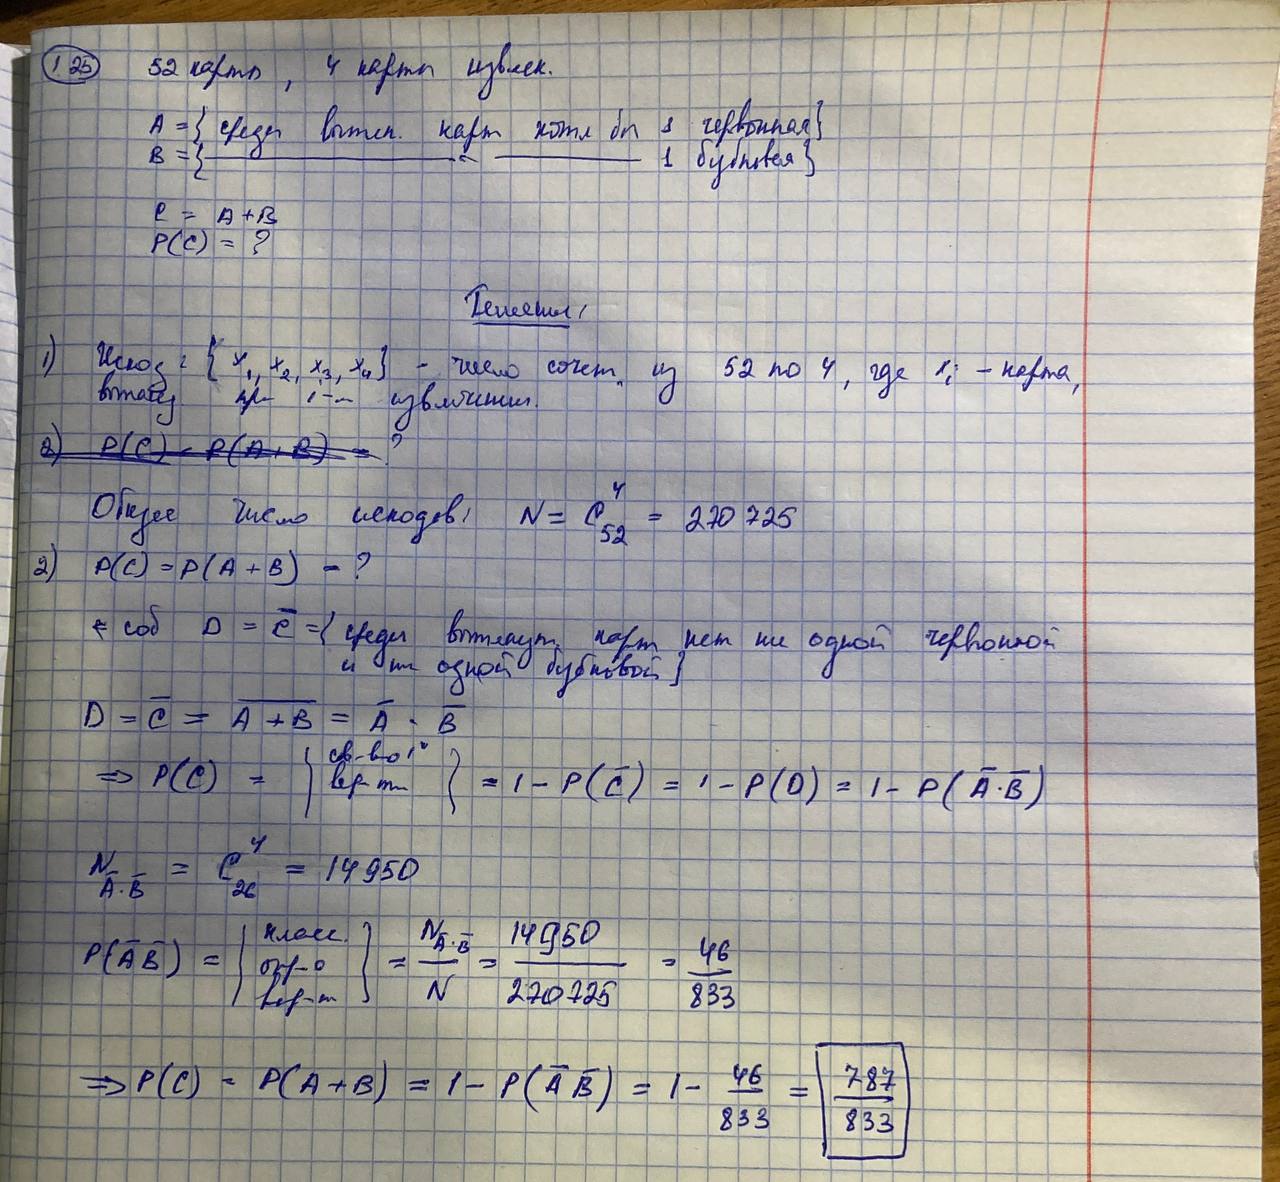 1.25 52 карты, 4 карты извлек.
A = { среди вытян. карт хотя бы 1 червонная }
B = { —————— " —————— 1 бубновая }
C = A+B
P(C) = ?
Решение:
1) Исход: { x₁, x₂, x₃, x₄ } - число сочет. из 52 по 4, где xᵢ - карта,
вытянут при i-м извлечении.
2) P(C) = P(A+B) - ?
Общее число исходов: N = C₅₂⁴ = 270 725
2) P(C) = P(A+B) - ?
соб D = C̅ = { среди вытянут. карт нет ни одной червонной
и ни одной бубновой }
D = C̅ = \overline{A+B} = A̅ · B̅
⇒ P(C) = { св-во 1° вер-ти } = 1 - P(C̅) = 1 - P(D) = 1 - P(A̅·B̅)
N_{A̅·B̅} = C₂₆⁴ = 14950
P(A̅B̅) = { класс. опр-е вер-ти } = N_{A̅·B̅}/N = 14950/270725 = 46/833
⇒ P(C) = P(A+B) = 1 - P(A̅B̅) = 1 - 46/833 = 787/833